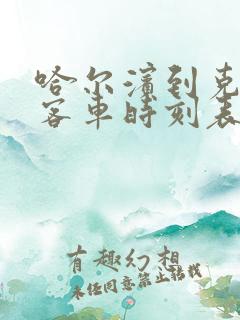 哈尔滨到克
客车时刻表
有趣幻想
未经同意禁止转载